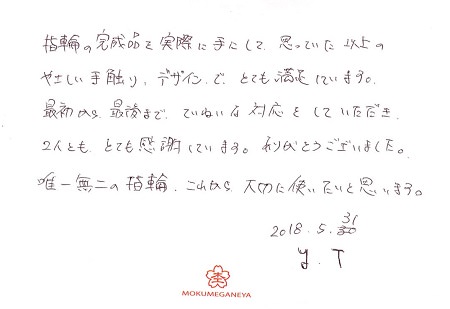 指輪の完成品を実際に手にして、思っていた以上の
やさしい手触り、デザインで、とても満足しています。
最初から最後まで、ていねいな対応をしていただき、
2人とも、とても感謝しています。ありがとうございました。
唯一無二の指輪、これから、大切に使いたいと思います。
2018. 5. 31
Y. T
MOKUMEGANEYA